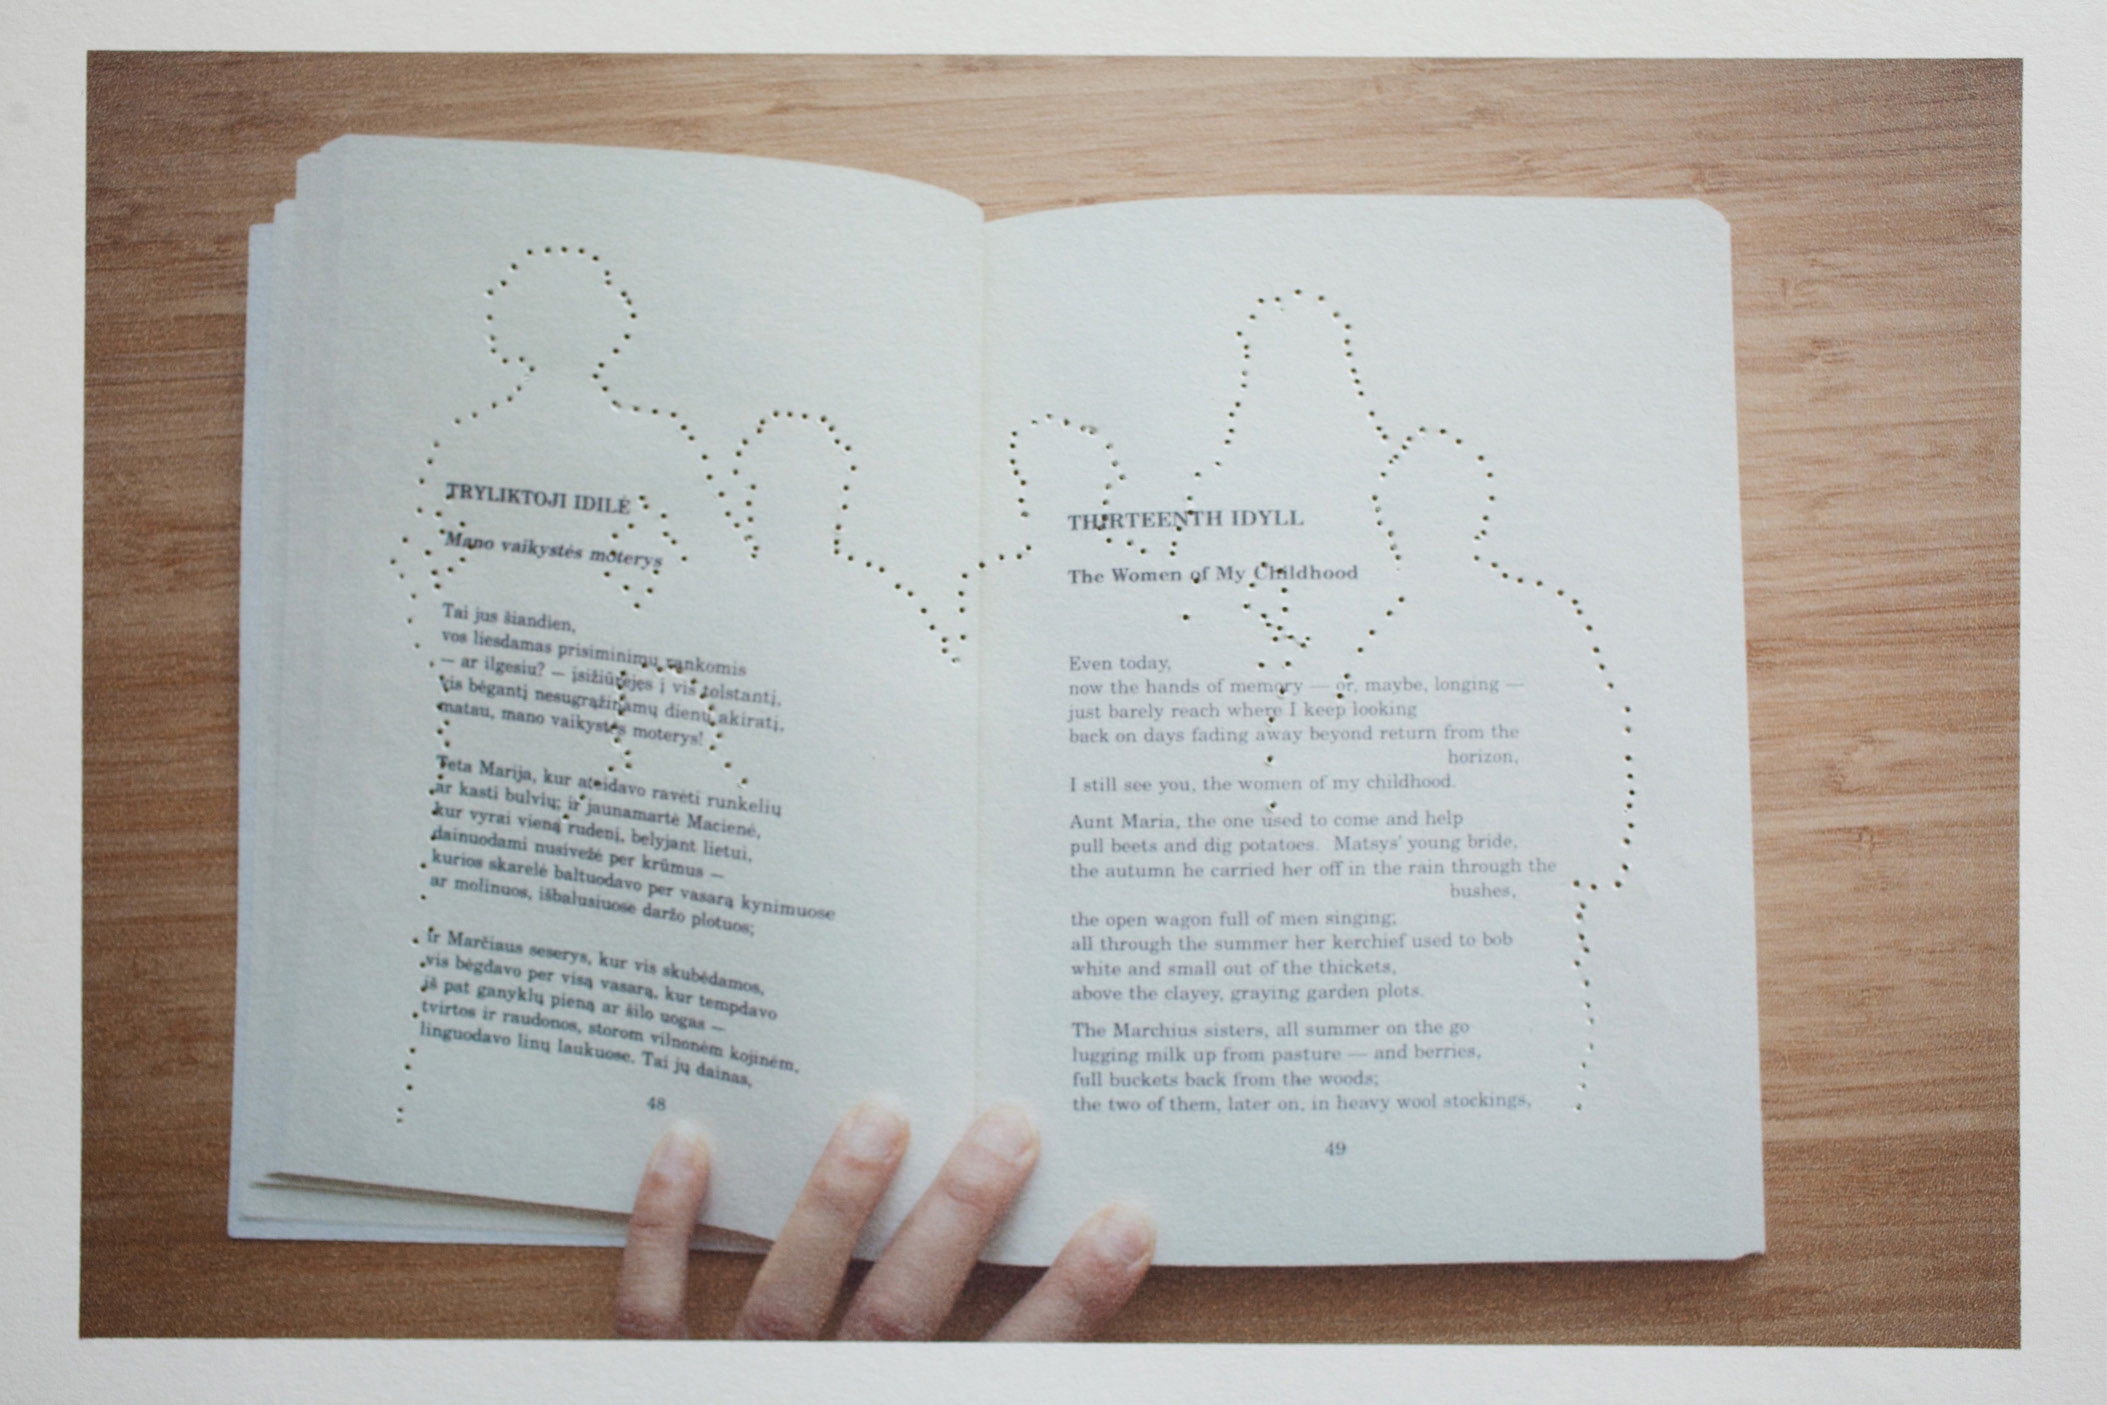 TRYLIKTOJI IDILĖ
Mano vaikystės moterys
Tai jus šiandien,
vos liesdamas prisiminimų rankomis
— ar ilgesiu? — įsižiūrėjęs į vis tolstantį,
vis bėgantį nesugrąžinamų dienų akiratį,
matau, mano vaikystės moterys!
Teta Marija, kur ateidavo ravėti runkelių
ar kasti bulvių; ir jaunamartė Macienė,
kur vyrai vieną rudenį, belyjant lietui,
dainuodami nusivežė per krūmus —
kurios skarelė baltuodavo per vasarą kynimuose
ar molinuos, išbalusiuose daržo plotuos;
ir Marčiaus seserys, kur vis skubėdamos,
vis bėgdavo per visą vasarą, kur tempdavo
iš pat ganyklų pieną ar šilo uogas —
tvirtos ir raudonos, storom vilnonėm kojinėm,
linguodavo linų laukuose. Tai jų dainas,
48
THIRTEENTH IDYLL
The Women of My Childhood
Even today,
now the hands of memory — or, maybe, longing —
just barely reach where I keep looking
back on days fading away beyond return from the
horizon,
I still see you, the women of my childhood.
Aunt Maria, the one used to come and help
pull beets and dig potatoes. Matsys' young bride,
the autumn he carried her off in the rain through the
bushes,
the open wagon full of men singing;
all through the summer her kerchief used to bob
white and small out of the thickets,
above the clayey, graying garden plots.
The Marchius sisters, all summer on the go
lugging milk up from pasture — and berries,
full buckets back from the woods;
the two of them, later on, in heavy wool stockings,
49